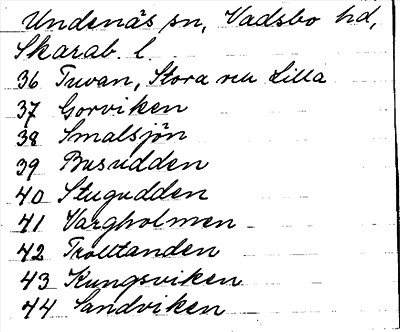 Undenäs sn, Vadsbo hd,
Skarab. l.
36 Tuvan, Stora och Lilla
37 Gorviken
38 Smalsjön
39 Busudden
40 Stugudden
41 Vargholmen
42 Trolltanden
43 Kungsviken
44 Sandviken